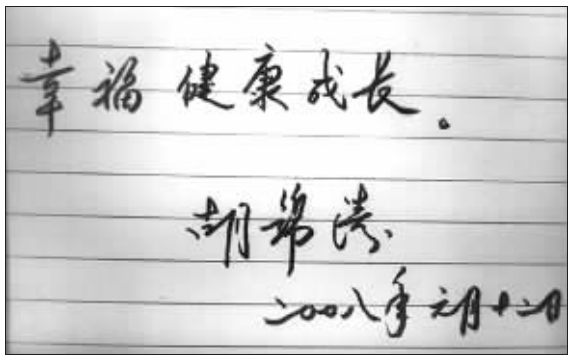 幸福 健康成长。
胡锦涛
二00八年元月十二日